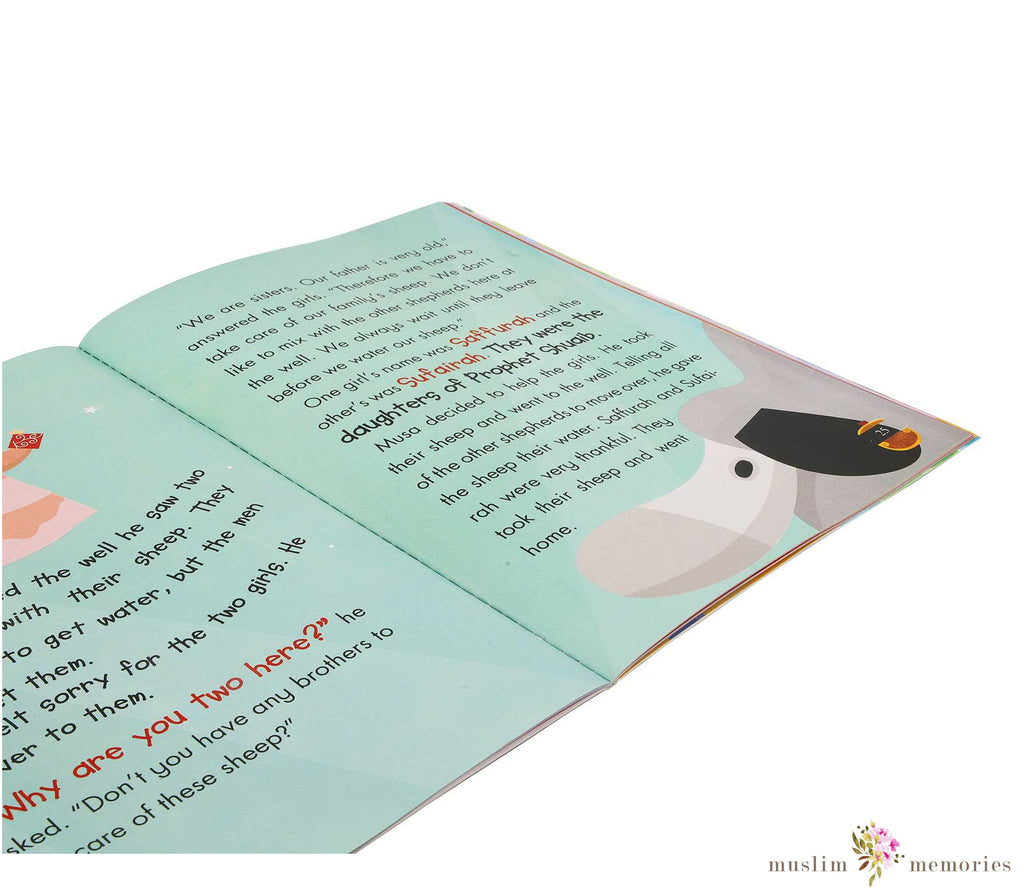 d the well he saw two
with their sheep. They
to get water, but the men
them.
sorry for the two girls. He
to them.
Why are you two here?" he
"Don't you have any brothers to
care of these sheep?"
"We are sisters. Our father is very old,"
answered the girls. "Therefore we have to
take care of our family's sheep. We don't
like to mix with the other shepherds here at
the well. We always wait until they leave
before we water our sheep."
One girl's name was Saffurah and the
other's was Sufairah. They were the
daughters of Prophet Shuaib.
Musa decided to help the girls. He took
their sheep and went to the well. Telling all
of the other shepherds to move over, he gave
the sheep their water. Saffurah and Sufai-
rah were very thankful. They
took their sheep and went
home.
25
muslim memories